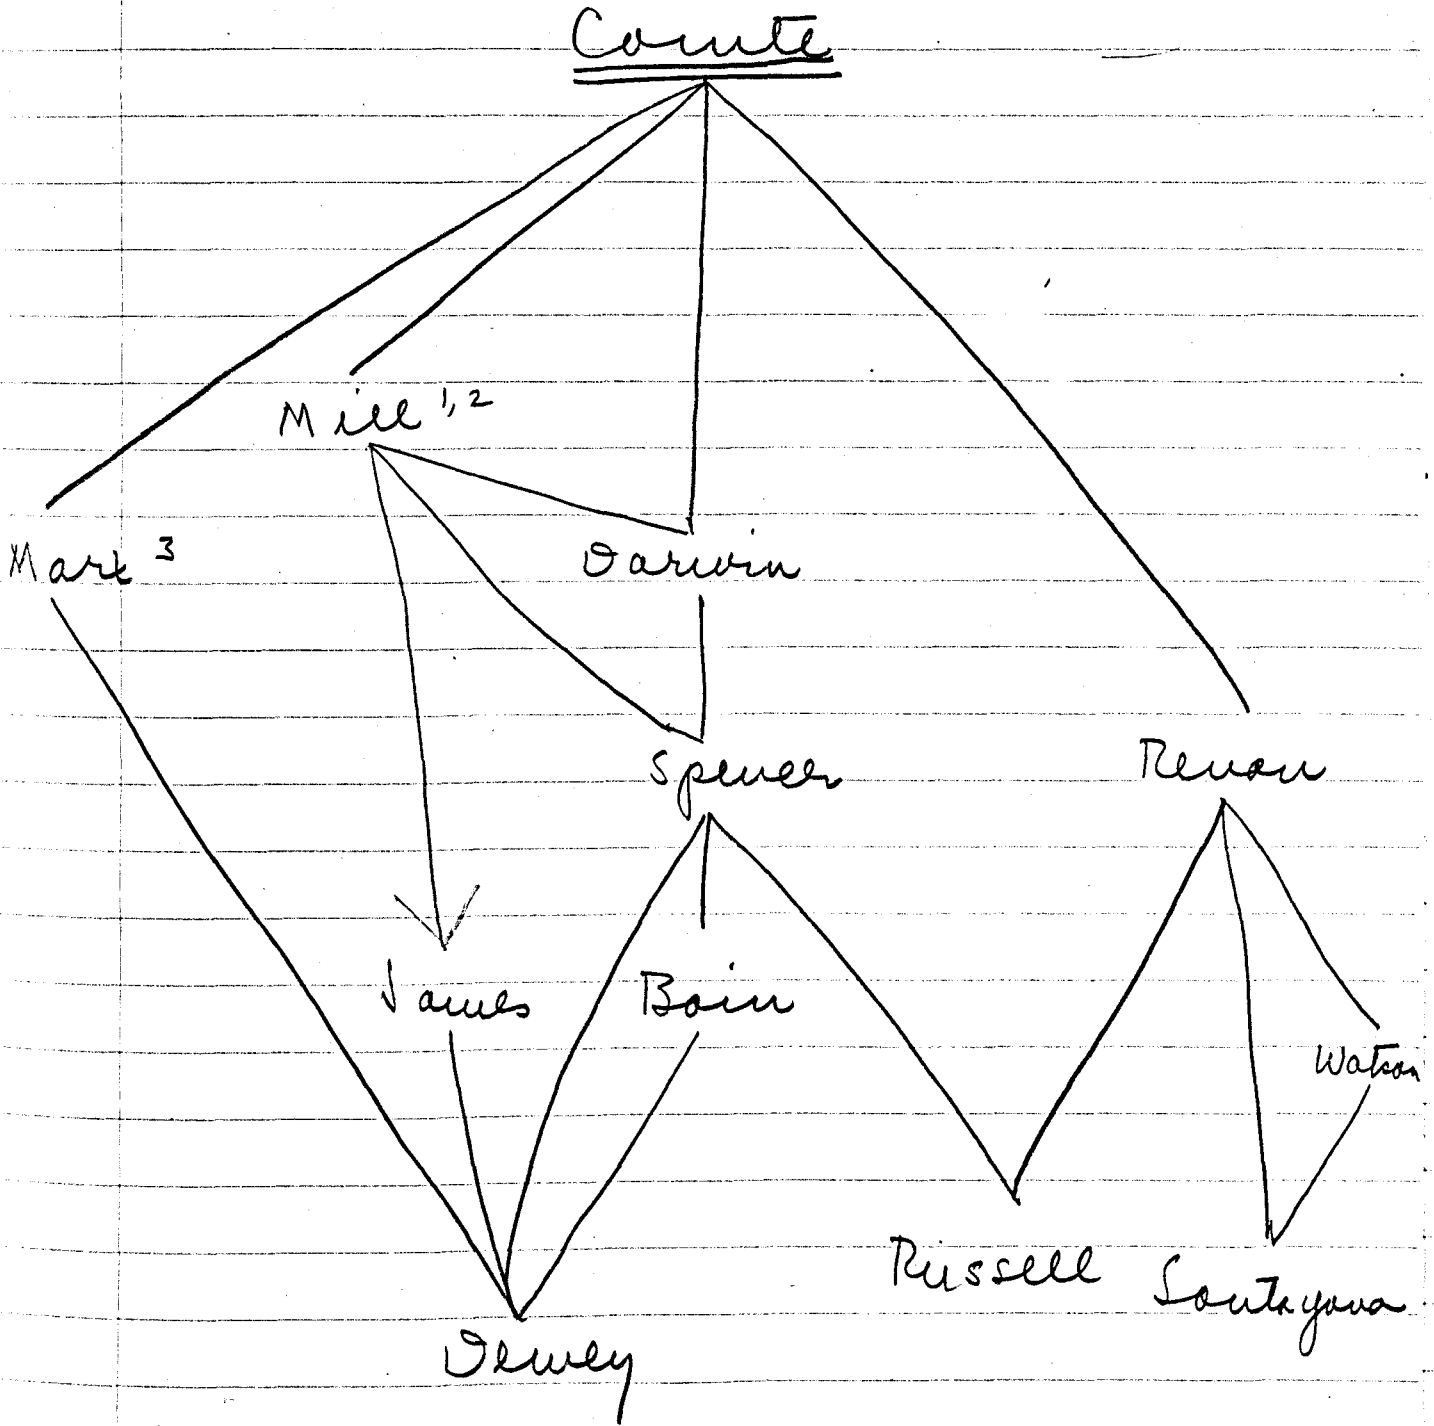 Comte
Mill 1,2
Marx 3
Darwin
Spencer
Renan
James
Bain
Watson
Russell
Santayana
Dewey